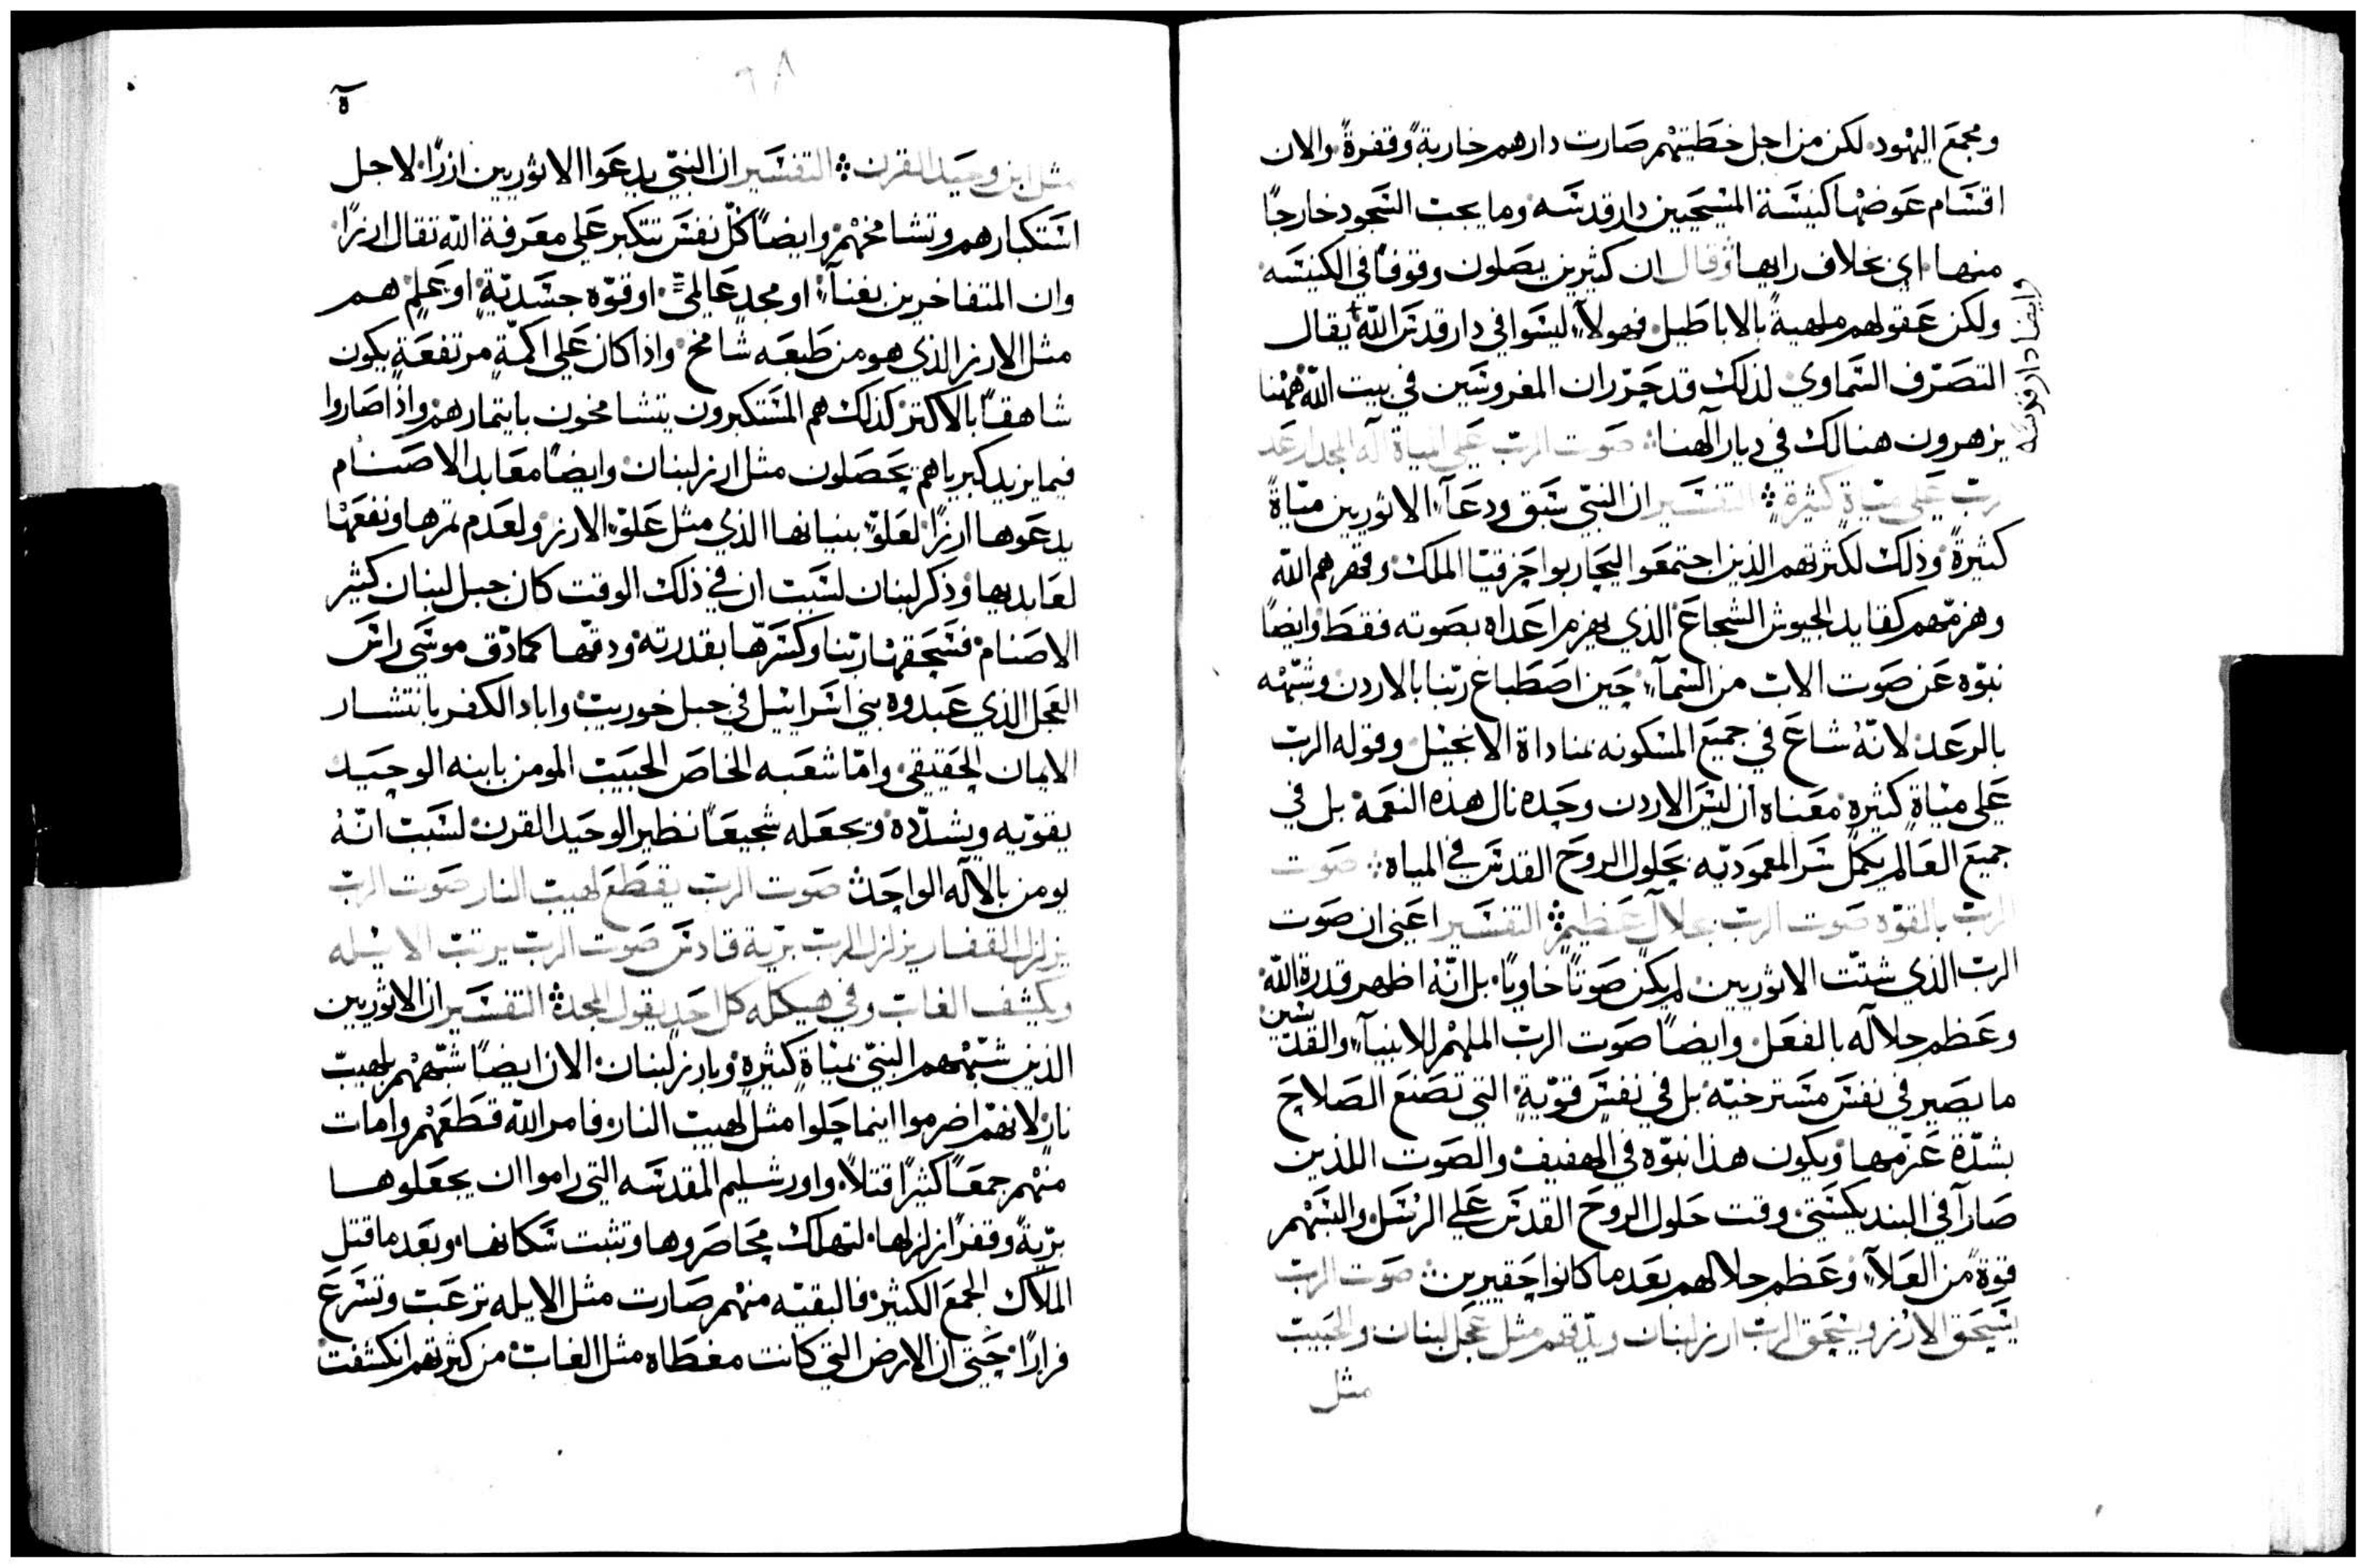 ومجمع اليهود لكن من اجل خطيتهم صارت دارهم خاربةً وقفرةً والان
اقسام عوضها كنيسة المسيحيين دار قدسه وما يجب السجود خارجًا
منها اي بخلاف رايها وقال ان كثيرين يصلون وقوفًا في الكنيسه
ولكن عقولهم ملهيةً بالاباطيل فهولآء ليسوا في دار قدس الله يقال
وايضا دار قدسه
التصرّف السماوي لذلك قد حرّر ان المغروسين في بيت الله ههنا
يزهرون هنالك في ديار آلهنا صوت الربّ على المياة آله المجد ارعد
ربّ على مياة كثيرة التفسير ان النبيّ سبق ودعآ الاثوريين مياةً
كثيرةً وذلك لكثرتهم الذين اجتمعوا ليحاربوا حزقيا الملك وقهرهم الله
وهزمهم كقايد الجيوش الشجاع الذي يهزم اعداه بصوته فقط وايضًا
نبوّه عن صوت الاب من السمآء حين اصطباغ ربّنا بالاردن وشبّهه
بالرعد لانّهُ شاع في جميع المسكونه بمناداة الانجيل وقوله الربّ
على مياةٍ كثيرة معناه ان ليس الاردن وحده نال هذه النعمة بل في
جميع العالم يكمل سر المعموديّه بحلول الروح القدس في المياه صوت
الربّ بالقوّه صوت الربّ بجلالٍ عظيمٍ التفسير اعني ان صوت
الربّ الذي شتّت الاثوريين لم يكن صوتًا خاويًا بل انّهُ اظهر قدرة الله
وعظم جلاله بالفعل وايضًا صوت الربّ الملهم للانبيآء والقدّيسين
ما يصير في نفسٍ مسترخيّه بل في نفسٍ قويّةٍ التي تصنع الصلاح
بشدّة عزمها ويكون هذا نبوّه في الهفيف والصوت اللذين
صارا في البنديكستي وقت حلول الروح القدس علي الرسل والبسهم
قوةً من العلآء وعظم جلالهم بعد ما كانوا حقيرين صوت الربّ
يسحق الارز ويسحق الربّ ارز لبنان ويدّقهم مثل عجل لبنان والحبيب
مثل
٥
مثل ابن وحيد القرن التفسير ان النبيّ يدعوا الاثوريين ارزًا لاجل
استكبارهم وتشامخهم وايضًا كلّ نفس تتكبر على معرفة الله تقال ارزًا
وان المتفاخرين بغنآء او مجدٍ عالميٍّ او قوّه جسديّةٍ او علمٍ هم
مثل الارز الذي هو من طبعه شامخ واذا كان على اكمّةٍ مرتفعةٍ يكون
شاهقًا بالاكثر كذلك هم المستكبرون يتشامخون بايتمارهم واذا صاروا
فيما يزيد كبرياهم يحصلون مثل ارز لبنان وايضًا معابد الاصنام
يدعوها ارزًا لعلوّ بنيانها الذي مثل علوّ الارز ولعدم ثمرها ونفعها
لعابديها وذكر لبنان لسبب ان في ذلك الوقت كان جبل لبنان كثير
الاصنام فسحقها ربّنا وكسّرها بقدرته ودقّها كما دّق موسى راس
العجل الذي عبدوه بني اسرائيل في جبل خوريب واباد الكفر بانتشار
الايمان الحقيقي وامّا شعبه الخاص الحبيب المومن بابنه الوحيد
يقوّيه ويشدّده ويجعله شجيعًا نظير الوحيد القرن لسبب انّهُ
يومن بالآله الواحد صوت الربّ يقطع لهيب النار صوت الربّ
يزلزل القفار يزلزل الربّ بريّة قادس صوت الربّ يرتب الايله
ويكشف الغاب وفي هيكله كل احد يقول المجد التفسير ان الاثوريين
الذين شبّههم النبيّ بمياةٍ كثيرة وبارز لبنان الان ايضًا شبّههم بلهيب
نار لانهم اضرموا اينما حلوا مثل لهيب النار فامر الله قطعهم وامات
منهم جمعًا كثيرًا قتلاً واورشليم المقدسه التي راموا ان يجعلوها
بريّةً وقفرًا زلزلها لتهلك محاصروها وتثبت سكانها وبعد ما قتل
الملاك الجمع الكثير فالبقيّه منهم صارت مثل الايله ترعب وتسرع
فرارًا حتى ان الارض التي كانت مغطاه مثل الغاب من كثرتهم انكشفت